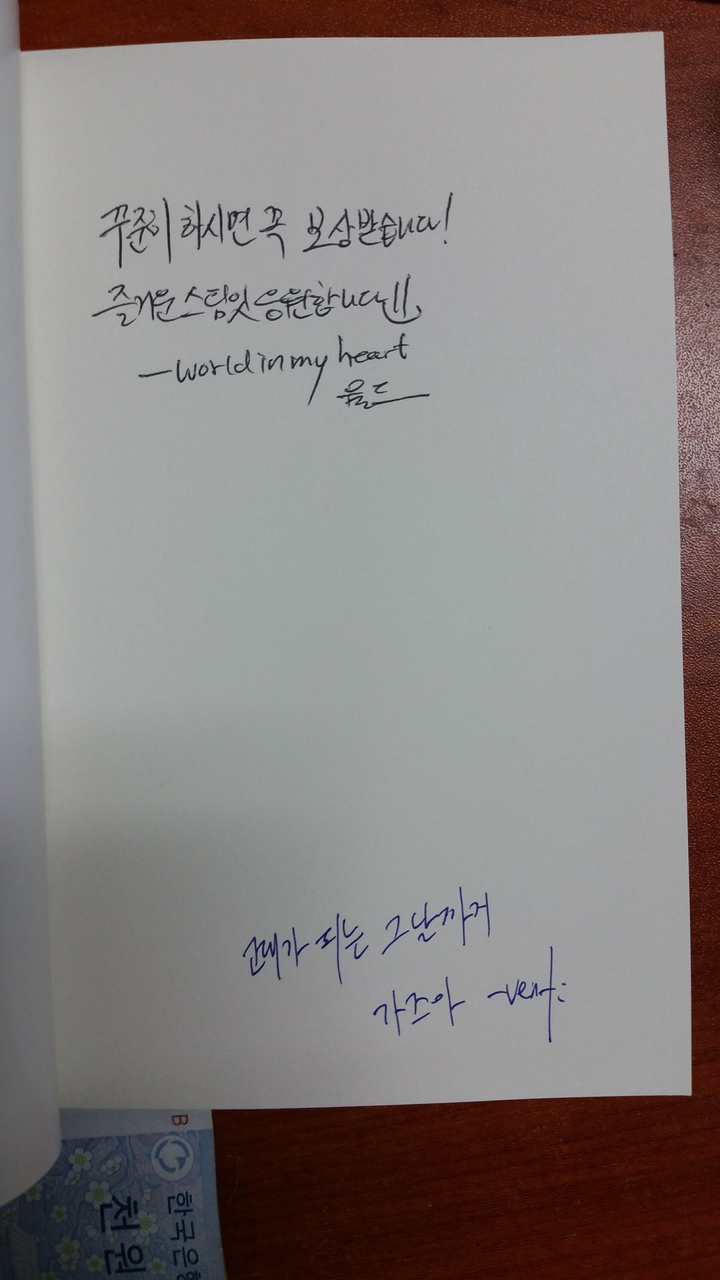 꾸준히 하시면 꼭 보상받습니다!
즐거운 스팀잇 응원합니다!!
-world in my heart
월드
고래가 되는 그날까지
가즈아 -venti
B
한국은
천원